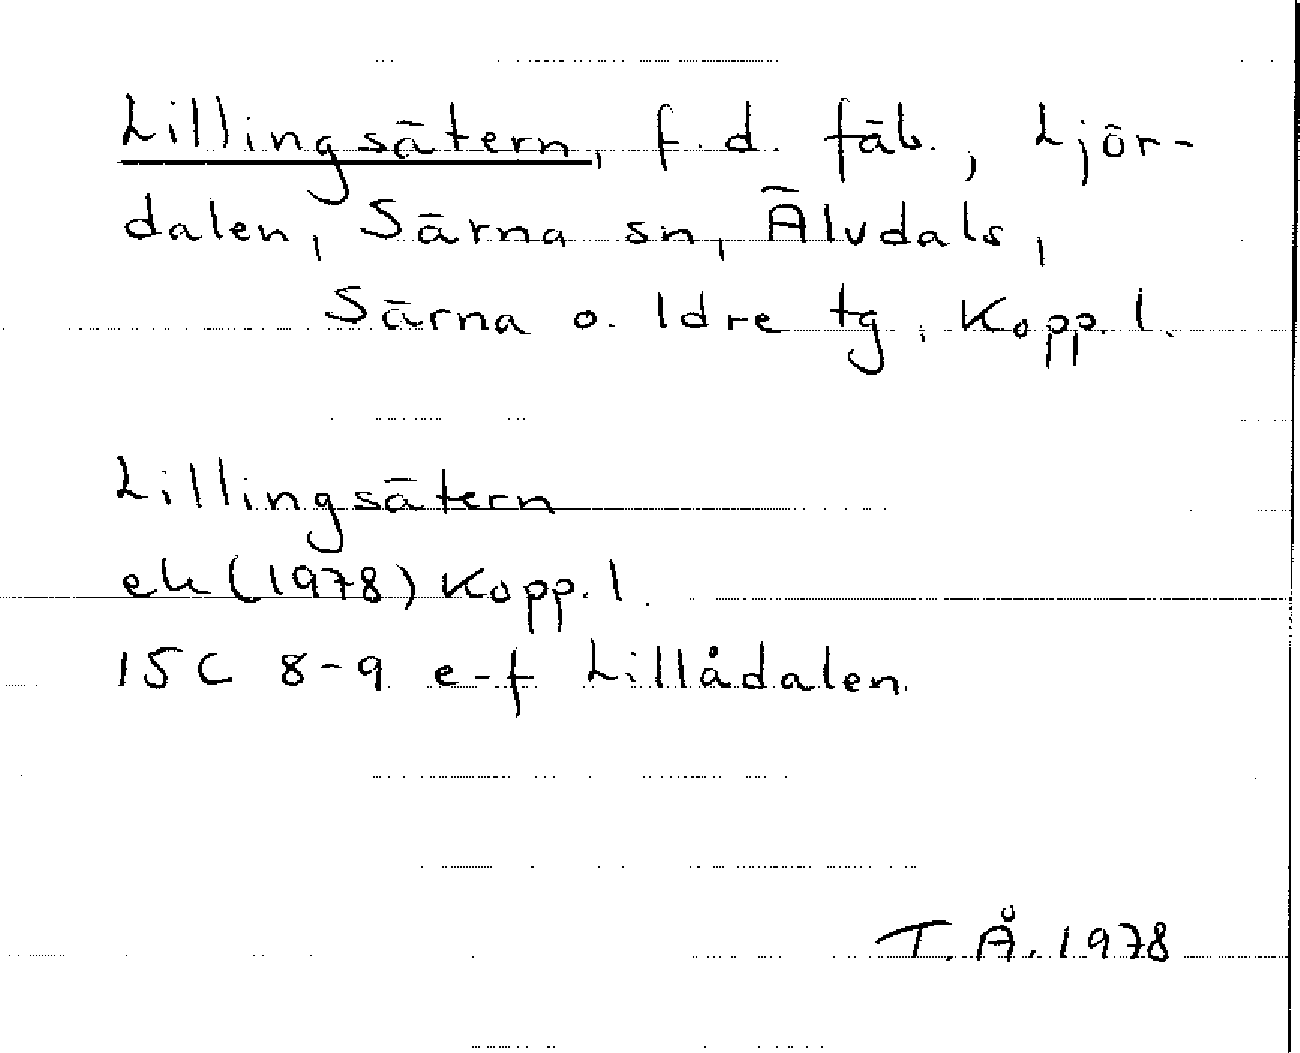 Lillingsätern, f.d. fäb., Ljör-
dalen, Särna sn, Älvdals,
Särna o. Idre tg, Kopp. l.
Lillingsätern
ek (1978) Kopp. l.
15C 8-9 e-f Lillådalen.
T.Å. 1978